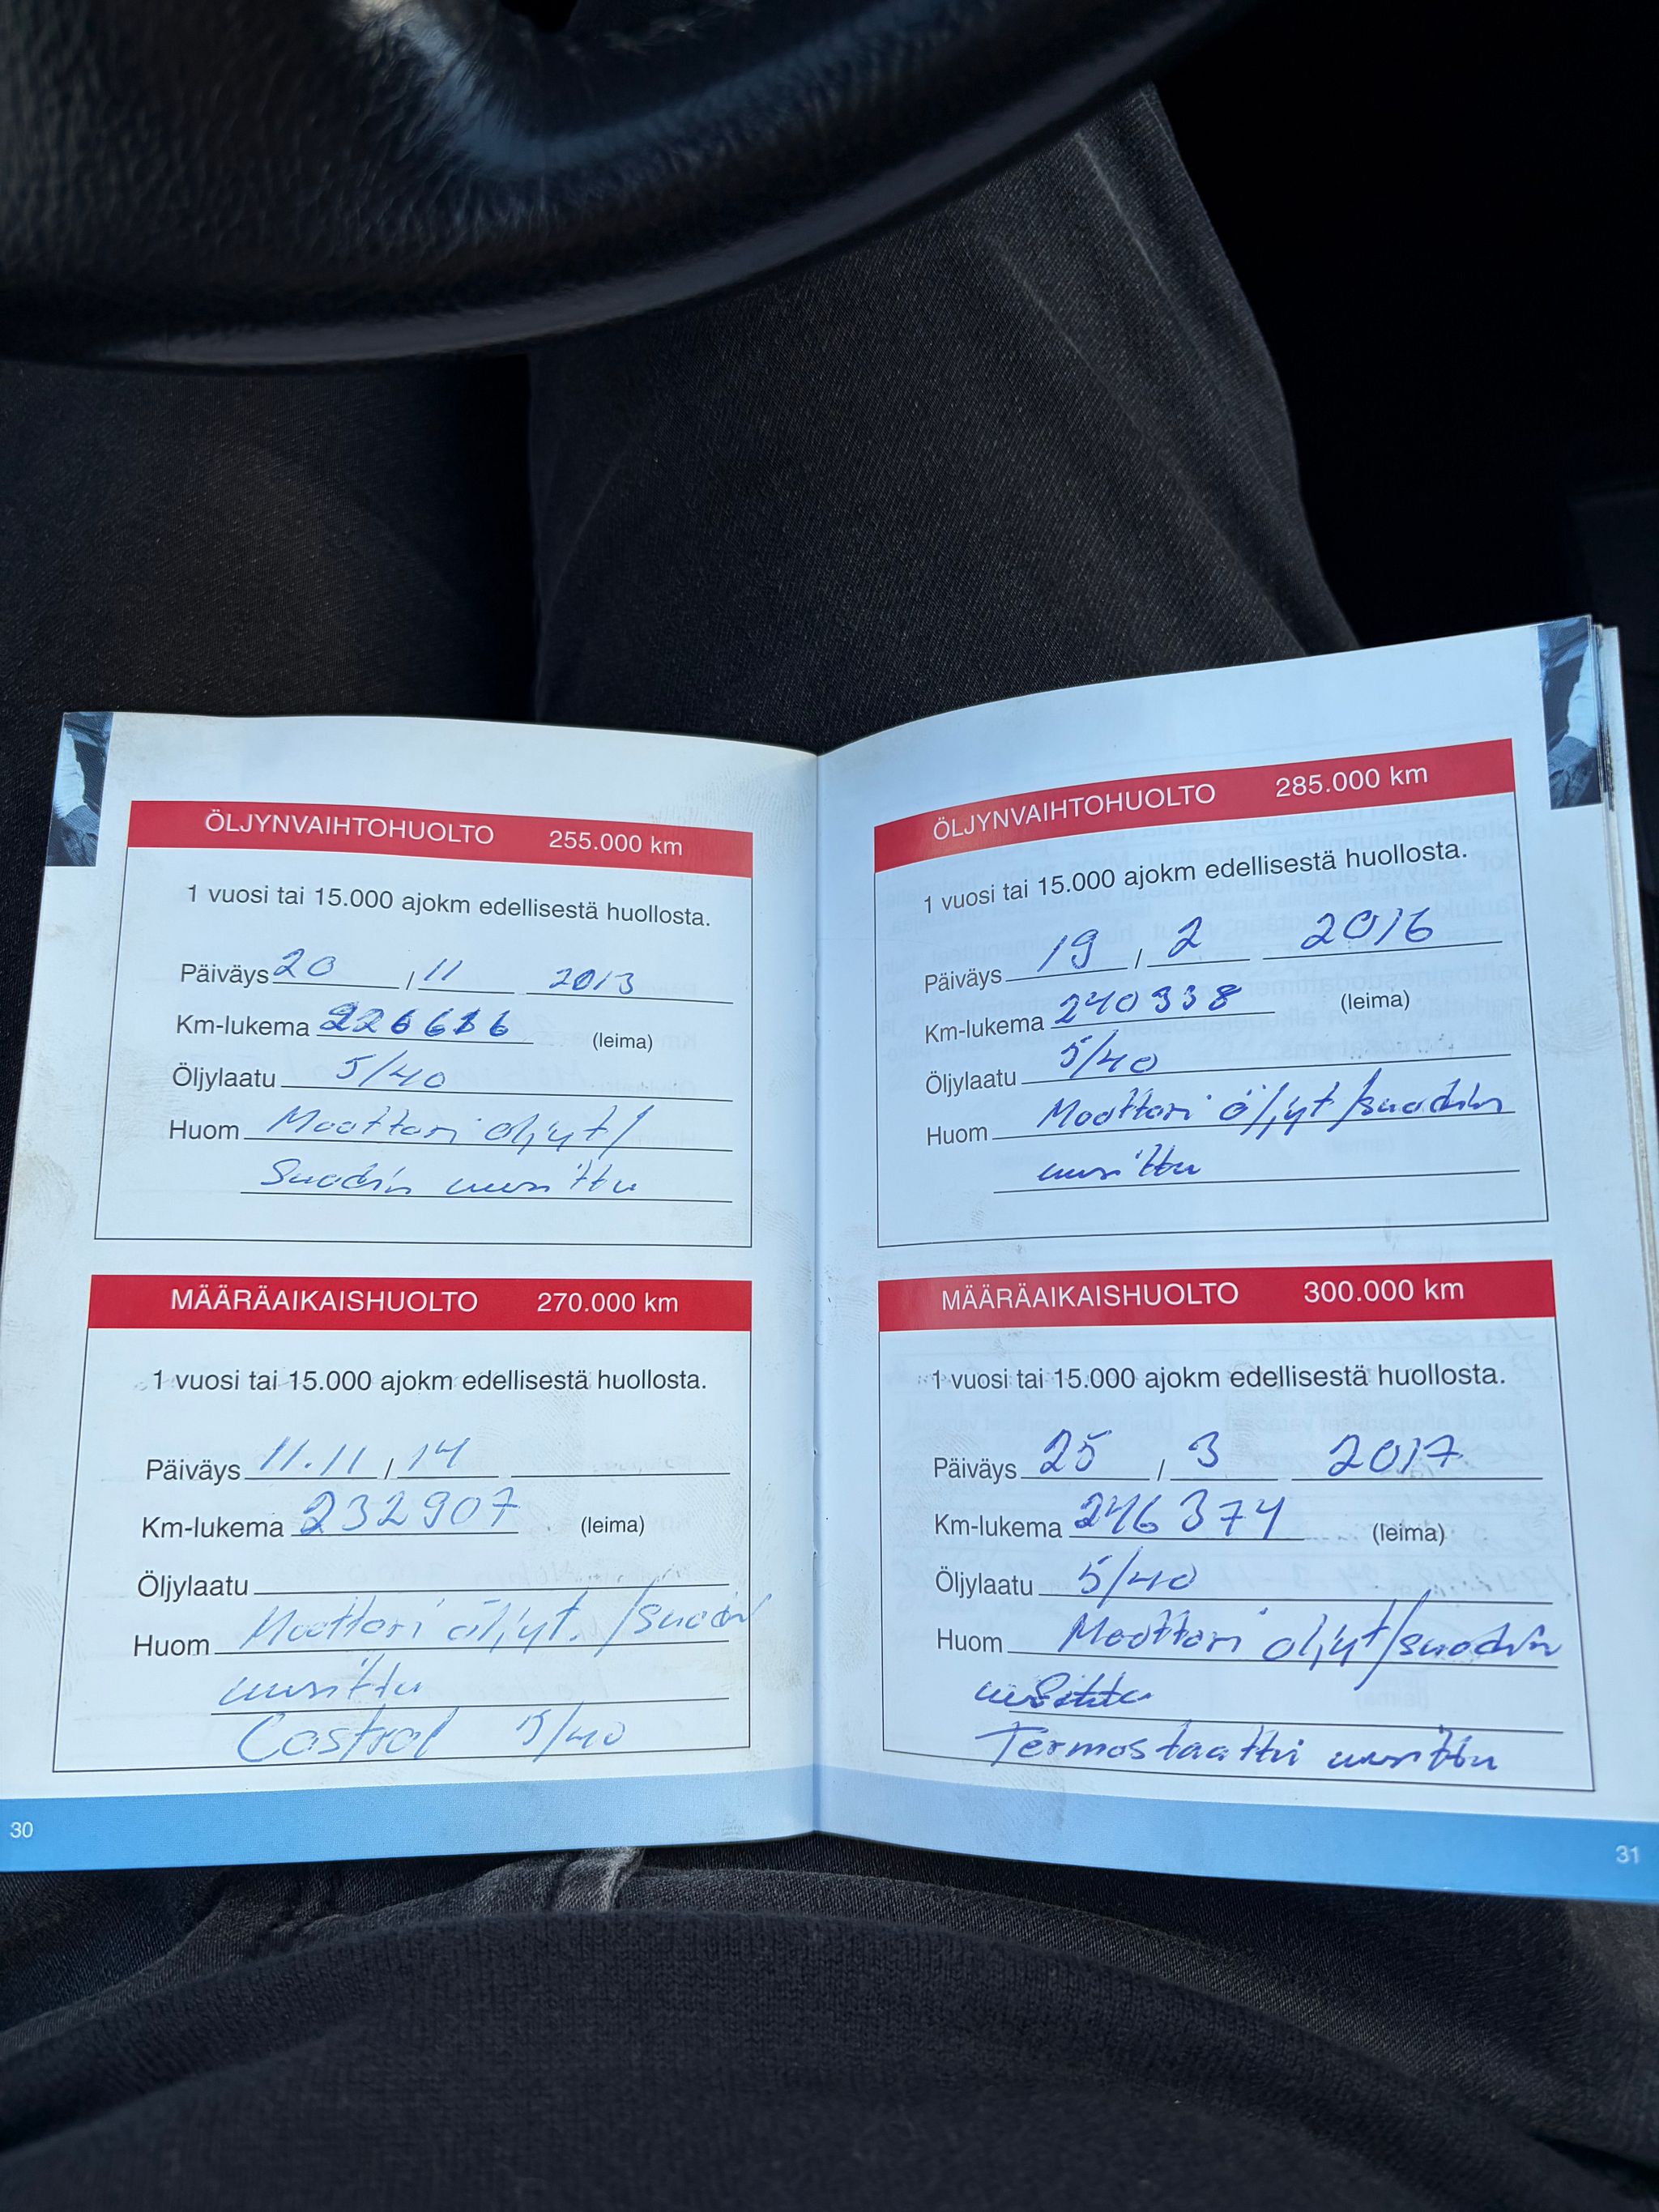 ÖLJYNVAIHTOHUOLTO 255.000 km
1 vuosi tai 15.000 ajokm edellisestä huollosta.
Päiväys 20 / 11 2013
Km-lukema (leima)
Öljylaatu 5/40
Huom Moottori öljyt/
Suodin uusittu
MÄÄRÄAIKAISHUOLTO 270.000 km
1 vuosi tai 15.000 ajokm edellisestä huollosta.
Päiväys 11.11 / 14
Km-lukema 232907 (leima)
Öljylaatu
Huom Moottori öljyt. /suodin
uusittu
Castrol 5/40
30
ÖLJYNVAIHTOHUOLTO 285.000 km
1 vuosi tai 15.000 ajokm edellisestä huollosta.
Päiväys 19 / 2 2016
Km-lukema 240338 (leima)
Öljylaatu 5/40
Huom Moottori öljyt/suodin
uusittu
MÄÄRÄAIKAISHUOLTO 300.000 km
1 vuosi tai 15.000 ajokm edellisestä huollosta.
Päiväys 25 / 3 2017
Km-lukema 246374 (leima)
Öljylaatu 5/40
Huom Moottori oljyt/suodin
uusittu
Termostaatti uusittu
31